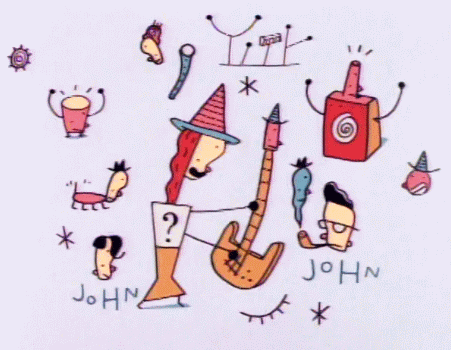 ?
JoHN
JoHN